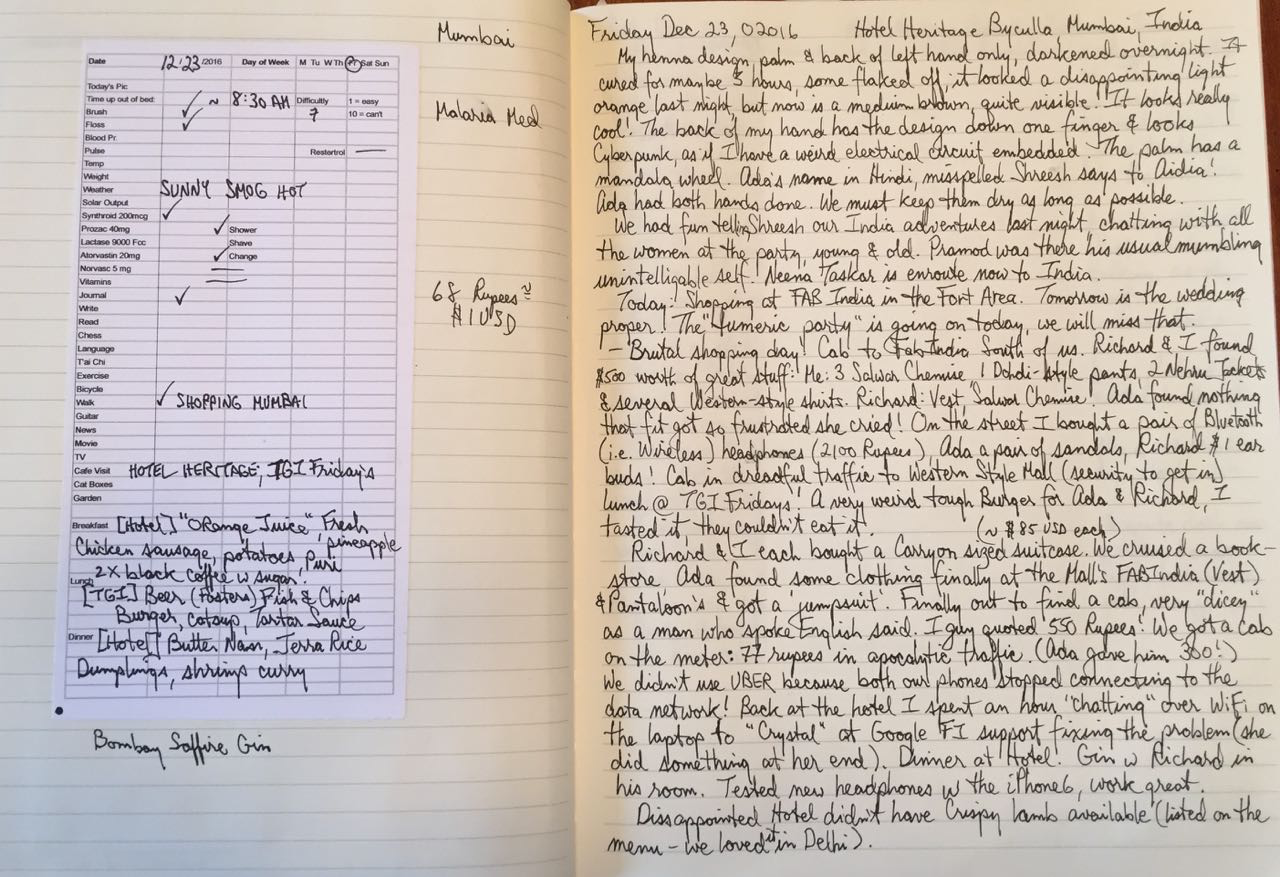 Mumbai
Date 12/23/2016 Day of Week M Tu W Th Fr Sat Sun
Today's Pic
Time up out of bed: ✓ ~ 8:30 AM Difficultly 1 = easy
Brush ✓ 7 10 = can't
Floss ✓
Blood Pr.
Pulse Restertrol —
Temp
Weight
Weather SUNNY SMOG HOT
Solar Output
Synthroid 200mcg ✓
Prozac 40mg ✓ Shower
Lactase 9000 Fcc Shave
Atorvastin 20mg ✓ Change
Norvasc 5 mg
Vitamins
Journal ✓
Write
Read
Chess
Language
T'ai Chi
Exercise
Bicycle
Walk ✓ SHOPPING MUMBAI
Guitar
News
Movie
TV
Cafe Visit HOTEL HERITAGE, TGI Friday's
Cat Boxes
Garden
Breakfast [Hotel] "ORange Juice", Fresh pineapple
Chicken sausage, potatoes, Puri
2X black coffee w sugar!
Lunch
[TGI] Beer (Fosters) Fish & Chips
Burger, catsup, Tartar Sauce
Dinner [Hotel] Butter Naan, Jerra Rice
Dumplings, shrimp curry
Malaria Med
68 Rupees ~
$1 USD
Bombay Saffire Gin
Friday Dec 23, 02016 Hotel Heritage Byculla, Mumbai, India
My henna design, palm & back of left hand only, darkened overnight. It
cured for maybe 3 hours, some flaked off, it looked a disappointing light
orange last night, but now is a medium brown, quite visible! It looks really
cool! The back of my hand has the design down one finger & looks
Cyberpunk, as if I have a weird electrical circuit embedded. The palm has a
mandala wheel. Ada's name in Hindi, misspelled Shreesh says to Aidia!
Ada had both hands done. We must keep them dry as long as possible.
We had fun telling Shreesh our India adventures last night, chatting with all
the women at the party, young & old. Pramod was there his usual mumbling
unintelligable self! Neena Taskar is enroute now to India.
Today! Shopping at FAB India in the Fort Area. Tomorrow is the wedding
proper! The "tumeric party" is going on today, we will miss that.
- Brutal shopping day! Cab to FabIndia South of us. Richard & I found
$500 worth of great stuff! Me: 3 Salwar Chemise 1 Dohdi-style pants, 2 Nehru Jackets
& several Western-style shirts. Richard: Vest, Salwar Chemise! Ada found nothing
that fit got so frustrated she cried! On the street I bought a pair of Bluetooth
(i.e. Wireless) headphones (2100 Rupees), Ada a pair of sandals, Richard $1 ear
buds! Cab in dreadful traffic to Western Style Mall (security to get in)
lunch @ TGI Fridays! A very weird tough Burger for Ada & Richard, I
tasted it, they couldn't eat it. (~ $85 USD each)
Richard & I each bought a Carryon sized suitcase. We cruised a book-
store. Ada found some clothing finally at the Mall's FABIndia (Vest)
& Pantaloon's & got a 'jumpsuit'. Finally out to find a cab, very "dicey"
as a man who spoke English said. 1 guy quoted 550 Rupees! We got a cab
on the meter: 77 rupees in apocalitic traffic. (Ada gave him 300!)
We didn't use UBER because both our phones stopped connecting to the
data network! Back at the hotel I spent an hour "chatting" over WiFi on
the laptop to "Crystal" at Google FI support fixing the problem (she
did something at her end). Dinner at Hotel. Gin w Richard in
his room. Tested new headphones w the iPhone6, work great.
Dissappointed Hotel didn't have Crispy lamb available (listed on the
menu - we loved it in Delhi).